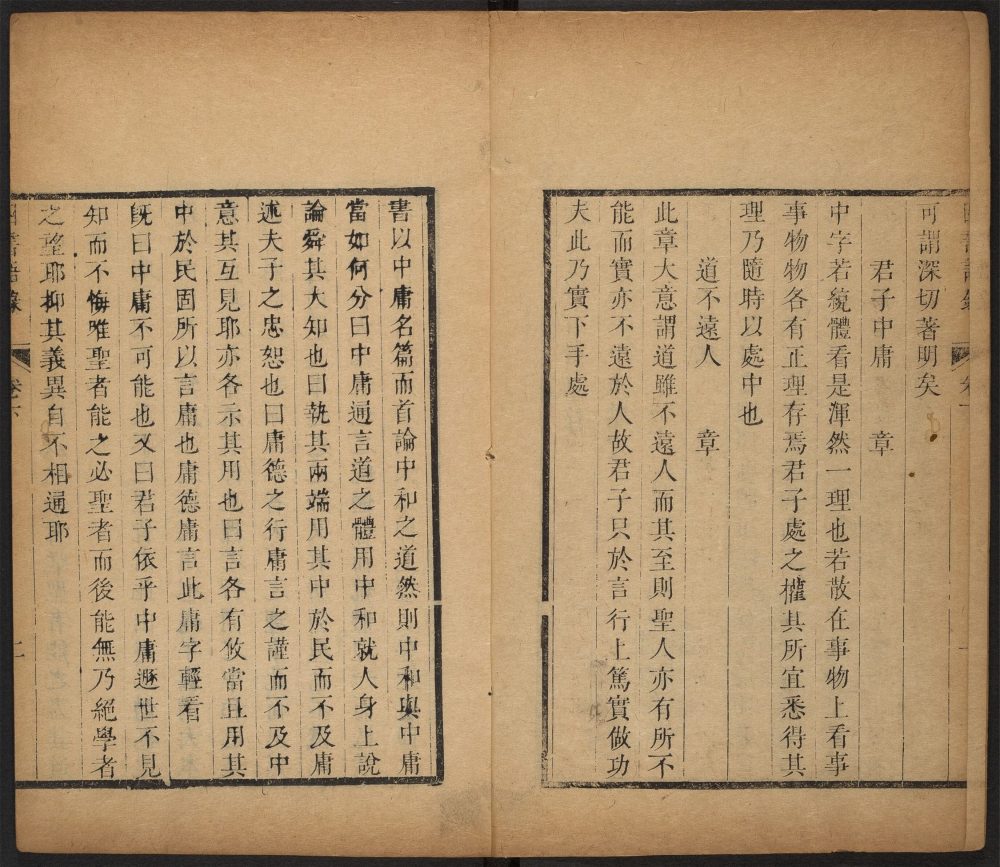 可謂深切著明矣
君子中庸　章
中字若統體看是渾然一理也若散在事物上看事
事物物各有正理存焉君子處之權其所宜悉得其
理乃隨時以處中也
道不遠人　章
此章大意謂道雖不遠人而其至則聖人亦有所不
能而實亦不遠於人故君子只於言行上篤實做功
夫此乃實下手處
書以中庸名篇而首論中和之道然則中和與中庸
當如何分曰中庸通言道之體用中和就人身上說
論舜其大知也曰執其兩端用其中於民而不及庸
述夫子之忠恕也曰庸德之行庸言之謹而不及中
意其互見耶亦各示其用也曰言各有攸當且用其
中於民固所以言庸也庸德庸言此庸字輕看
旣曰中庸不可能也又曰君子依乎中庸遯世不見
知而不悔唯聖者能之必聖者而後能無乃絕學者
之望耶抑其義異自不相通耶
四書語錄　卷六